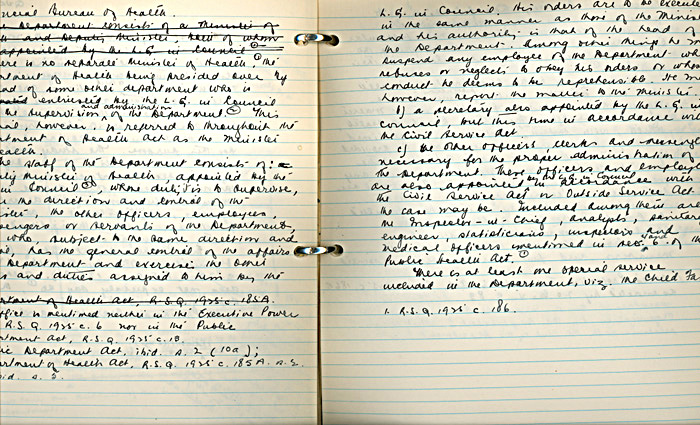 ncial Bureau of Health.
e Department consists of a Minister of
h and Deputy Minister, both of whom
appointed by the L.G. in Council
ere is no separate Minister of Health, the
rtment of Health being presided over by
ad of some other department who is
entrusted by the L.G. in Council
he supervision and administration of the Department. This
ial, however, is referred to throughout the
rtment of Health Act as the Minister
ealth.
he staff of the Department consists of:
ty Minister of Health, appointed by the
in Council, whose duty is to supervise,
r the direction and control of the
ister, the other officers, employees,
sengers or servants of the Department,
who, subject to the same direction and
ol, has the general control of the affairs
Department and exercises the other
s and duties assigned to him by the
rtment of Health Act, R.S.Q. 1925 c. 185A.
office is mentioned neither in the Executive Power
R.S.Q. 1925 c. 6 nor in the Public
rtment Act, R.S.Q. 1925 c. 18.
ic Department Act, ibid. s. 2 (10a);
rtment of Health Act, R.S.Q. 1925 c. 185A. s. 2.
bid. s. 3.
L.G. in Council. His orders are to be execute
in the same manner as those of the Minis
and his authority is that of the head of
the Department. Among other things he may
suspend any employee of the Department who
refuses or neglects to obey his orders or whose
conduct he deems to be reprehensible. He m
however, report the matter to the Minister.
b) a secretary also appointed by the L.G. in
Council, but this time in accordance with
the Civil Service Act.
c) the other officers, clerks and messenge
necessary for the proper administration of
the Department. These officers and employe
are also appointed by the L.G. in Council in accordance with
the Civil Service Act or Outside Service Act
as the case may be. Included among them are
the Inspector-in-Chief, analysts, sanitary
engineer, statisticians, inspectors and
medical officers mentioned in sec. 6 of the
Public Health Act. 1
There is at least one special service
included in the Department, viz. the Child
1. R.S.Q. 1925 c. 186.